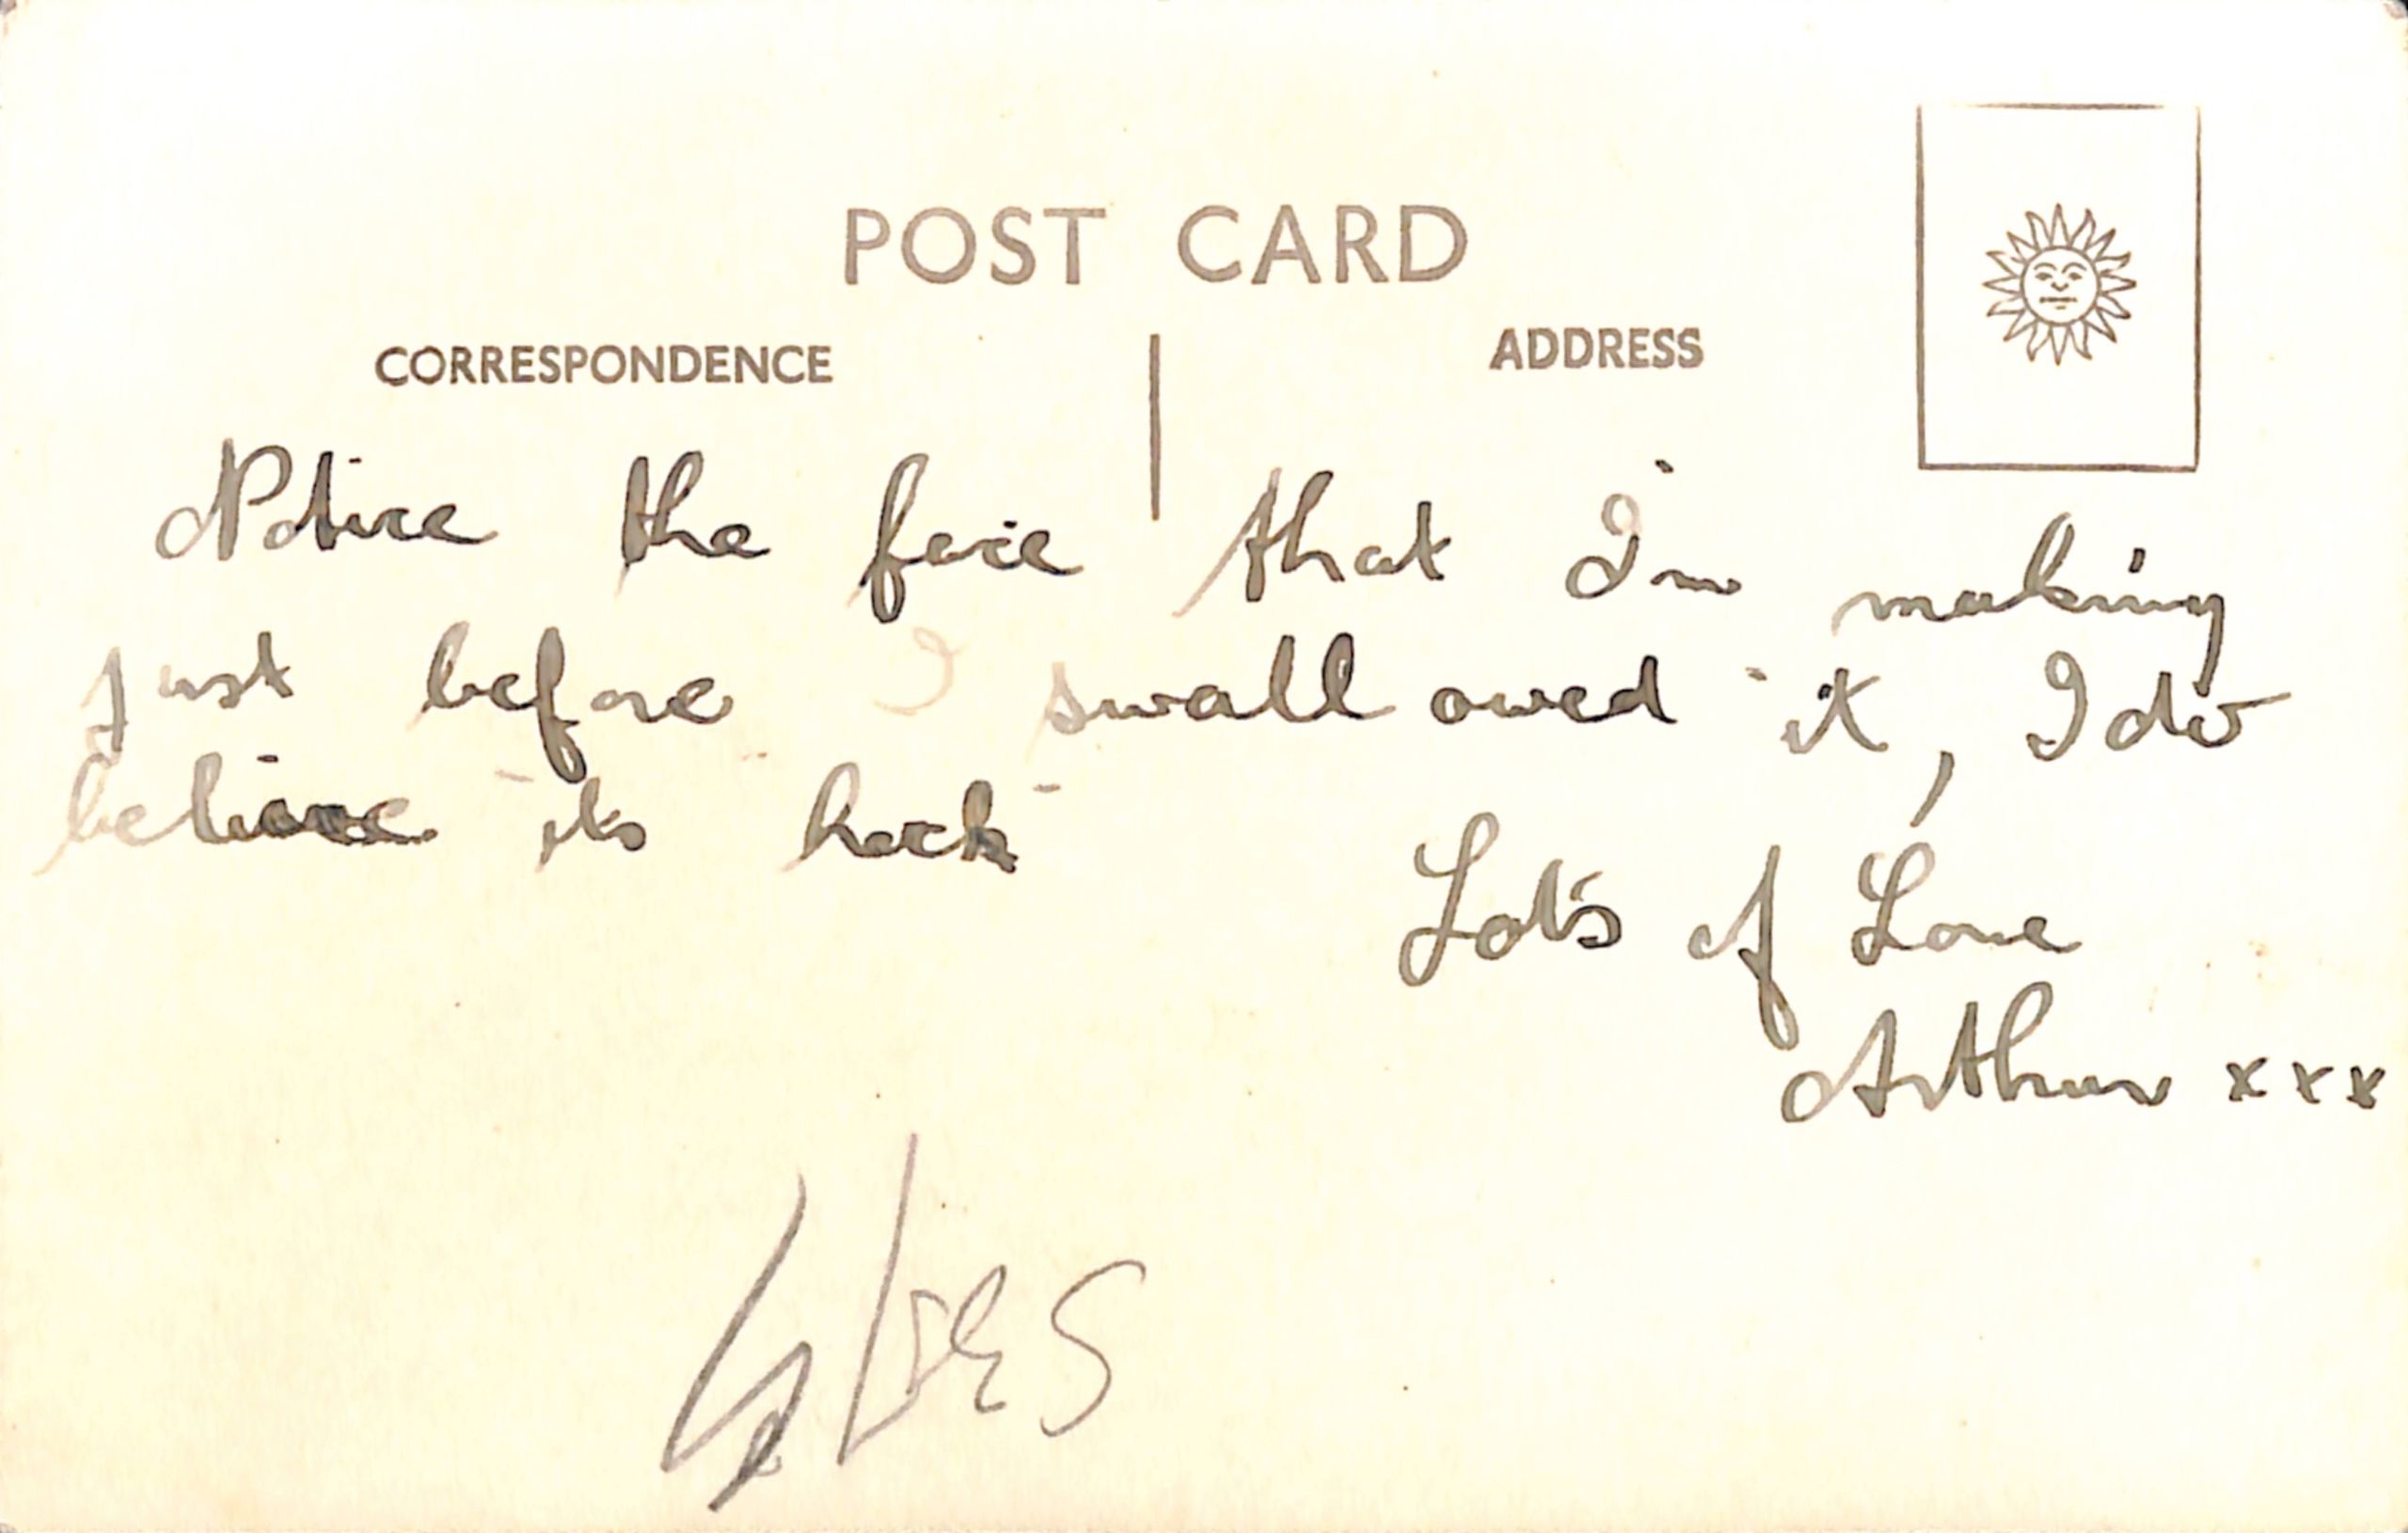 POST CARD
CORRESPONDENCE
ADDRESS
Notice the face that I'm making
just before I swallowed it, I do
believe its hock
Lot's of Love
Arthur xxx